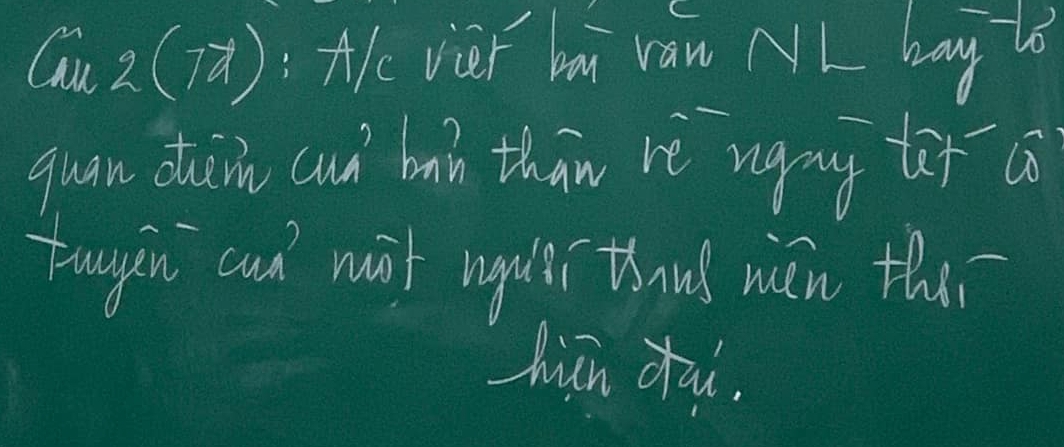 Câu 2 (7đ): A/c viết bài văn NL bày tỏ
quan điểm của bản thân về ngày tết cổ
truyền của một người thanh niên thời
hiện đại.